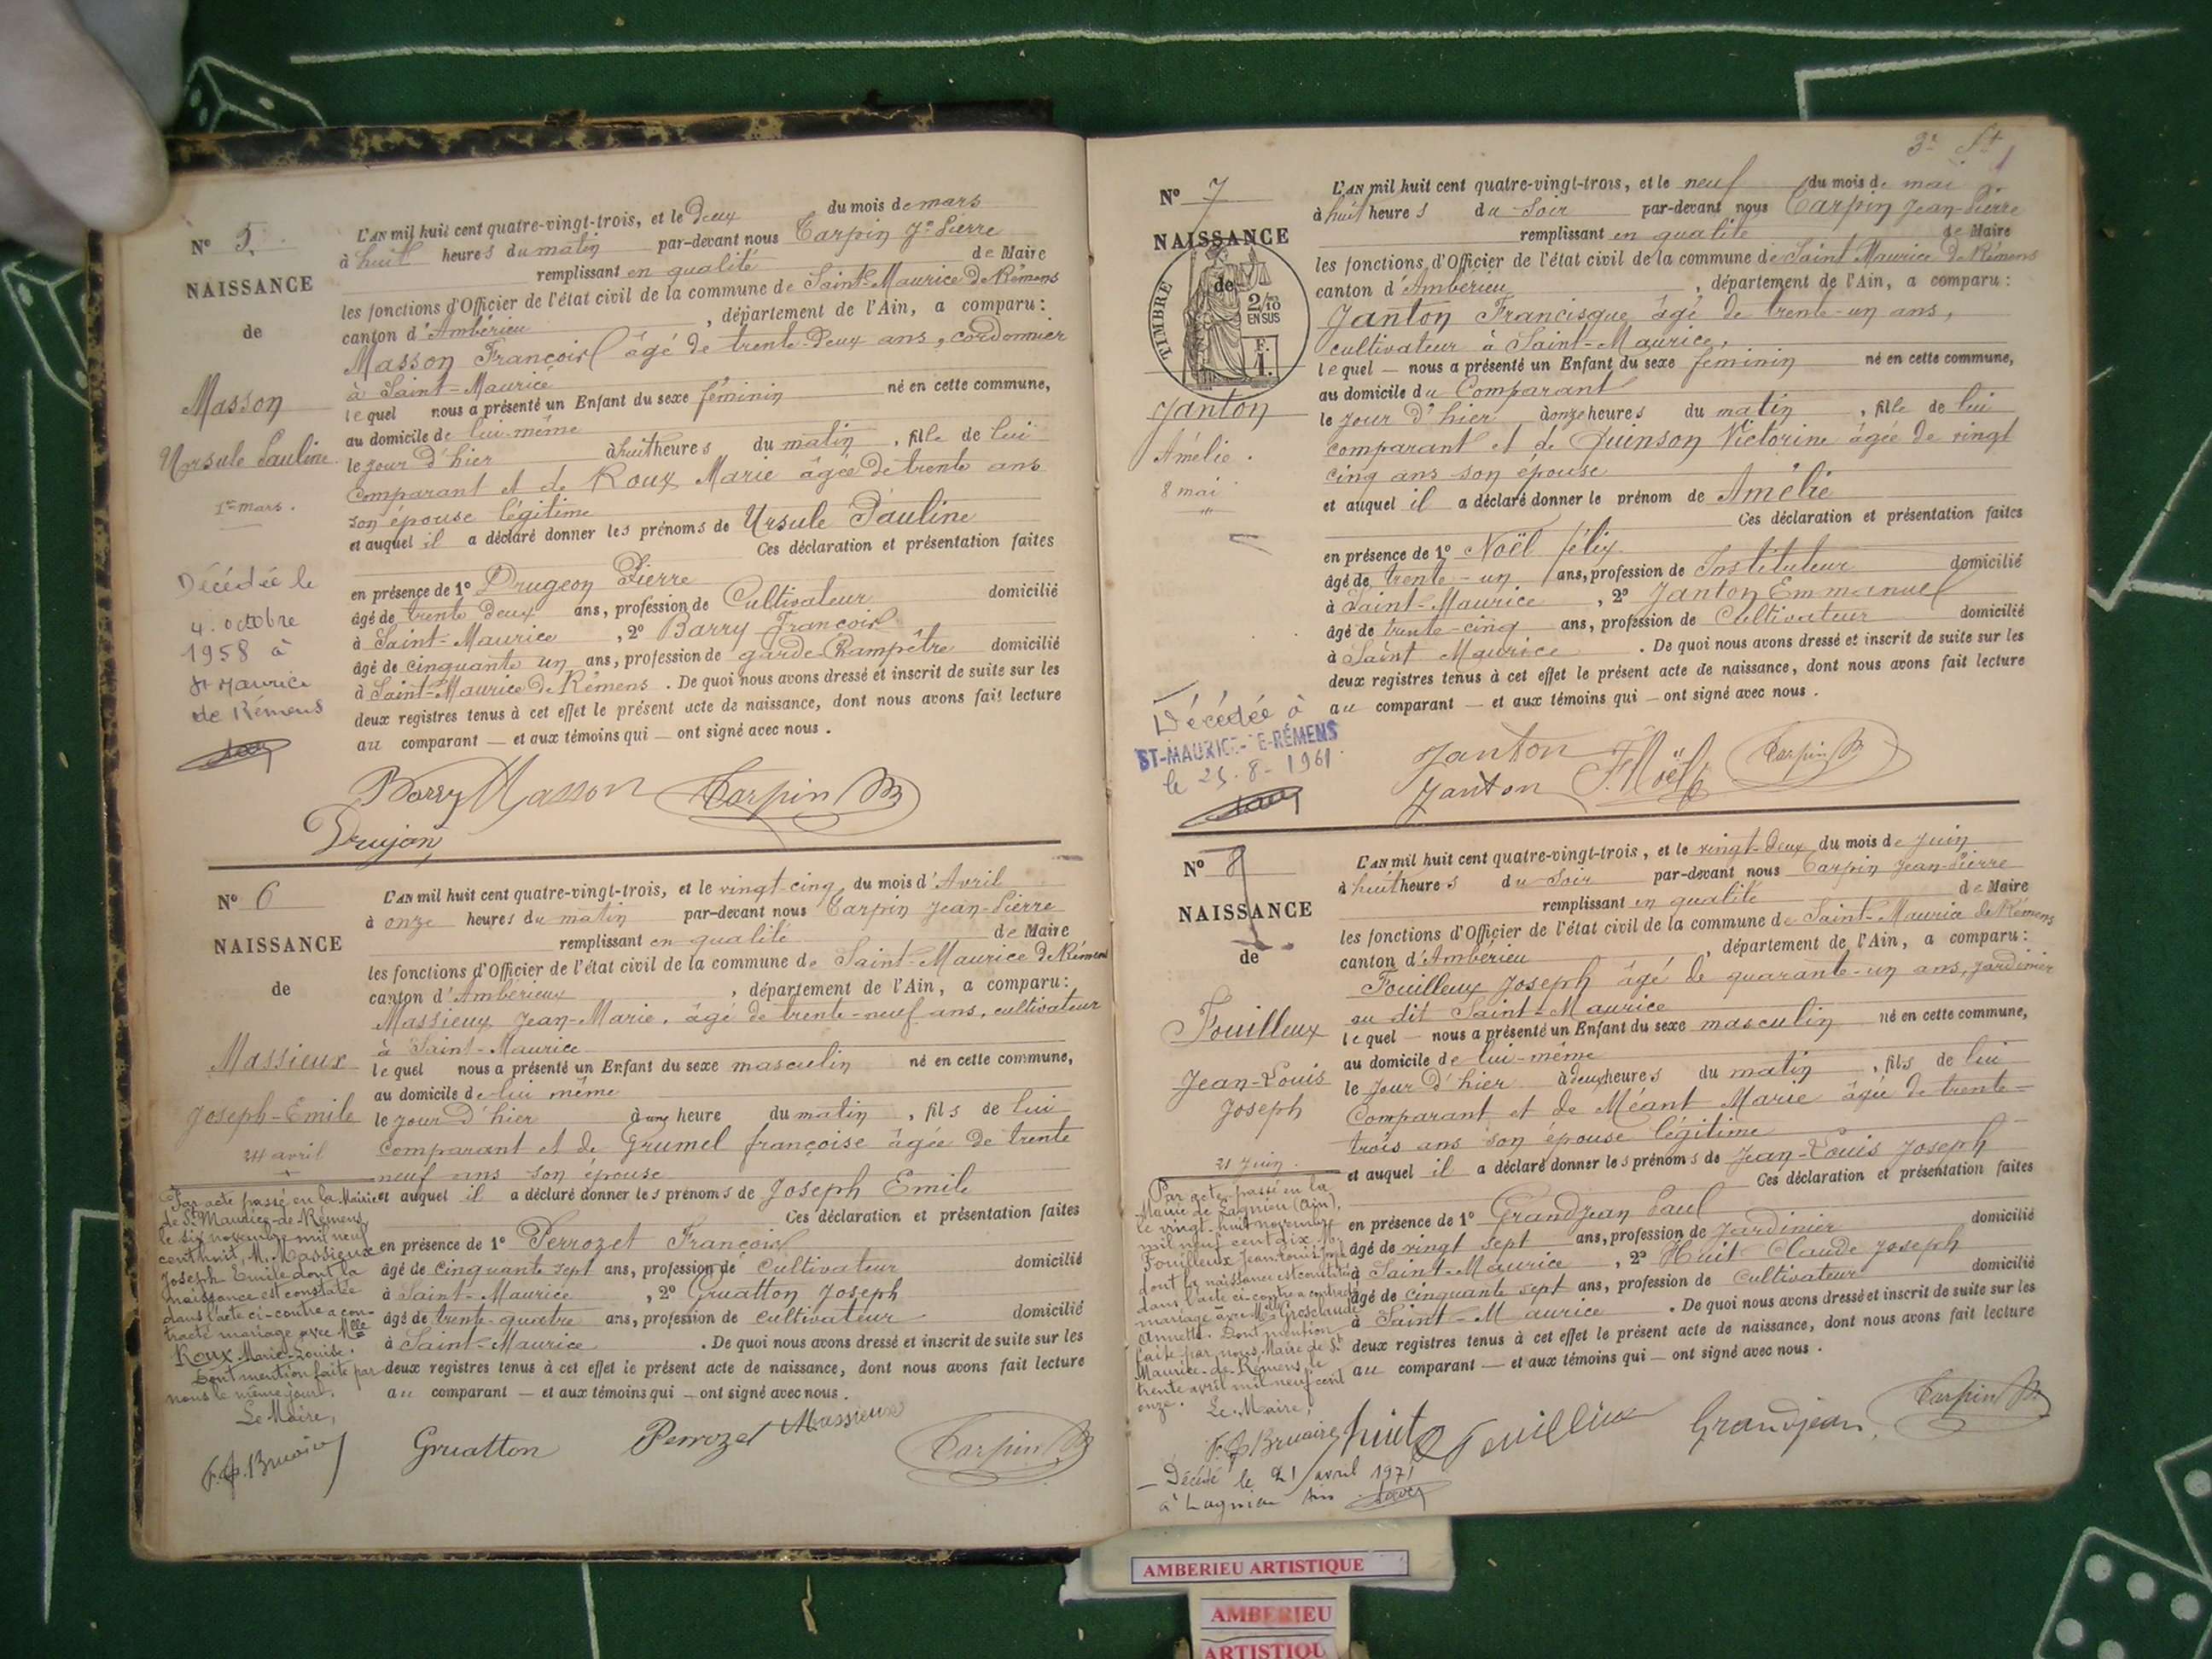 N° 5.
NAISSANCE
de
Masson
Ursule Pauline
1er mars.
Décédée le
4. octobre
1958 à
St Maurice
de Rémens
L'AN mil huit cent quatre-vingt-trois, et le Deux du mois de mars
à huit heures du matin par-devant nous Carpin Jn Pierre
remplissant en qualité de Maire
les fonctions d'Officier de l'état civil de la commune de Saint-Maurice De Rémens
canton d'Ambérieu, département de l'Ain, a comparu:
Masson François âgé de trente-deux ans, cordonnier
à Saint-Maurice
lequel nous a présenté un Enfant du sexe féminin né en cette commune,
au domicile de lui-même
le jour d'hier à huit heures du matin, fille de lui
Comparant et de Roux Marie âgée de trente ans
son épouse légitime
et auquel il a déclaré donner les prénoms de Ursule Pauline
Ces déclaration et présentation faites
en présence de 1° Drugeon Pierre
âgé de trente deux ans, profession de Cultivateur domicilié
à Saint-Maurice, 2° Barry François
âgé de cinquante un ans, profession de garde-Champêtre domicilié
à Saint-Maurice De Rémens. De quoi nous avons dressé et inscrit de suite sur les
deux registres tenus à cet effet le présent acte de naissance, dont nous avons fait lecture
au comparant — et aux témoins qui — ont signé avec nous.
Barry Masson Carpin
Drujon
N° 6
NAISSANCE
de
Massieux
Joseph-Emile
24 avril
Par acte passé en la Mairie
de St Maurice-de-Rémens
le six novembre mil neuf
cent huit, M. Massieux
Joseph Emile dont la
naissance est constatée
dans l'acte ci-contre a con-
tracté mariage avec Mlle
Roux Marie-Louise.
Dont mention faite par
nous le même jour.
Le Maire,
L'AN mil huit cent quatre-vingt-trois, et le vingt-cinq du mois d'Avril
à onze heures du matin par-devant nous Carpin Jean-Pierre
remplissant en qualité de Maire
les fonctions d'Officier de l'état civil de la commune de Saint-Maurice de Rémens
canton d'Ambérieux, département de l'Ain, a comparu:
Massieux Jean-Marie, âgé de trente-neuf ans, cultivateur
à Saint-Maurice
lequel nous a présenté un Enfant du sexe masculin né en cette commune,
au domicile de lui même
le jour d'hier à une heure du matin, fils de lui
Comparant et de Grumel françoise âgée de trente
neuf ans son épouse
et auquel il a déclaré donner les prénoms de Joseph Emile
Ces déclaration et présentation faites
en présence de 1° Perrozet François
âgé de cinquante sept ans, profession de Cultivateur domicilié
à Saint-Maurice, 2° Gruatton Joseph
âgé de trente-quatre ans, profession de cultivateur domicilié
à Saint-Maurice. De quoi nous avons dressé et inscrit de suite sur les
deux registres tenus à cet effet le présent acte de naissance, dont nous avons fait lecture
au comparant — et aux témoins qui — ont signé avec nous.
Gruatton Perrozet Massieux Carpin
N° 7
NAISSANCE
de
TIMBRE
2/10
EN SUS
F.
1.
Janton
Amélie.
8 mai
Décédée à
ST-MAURICE-DE-RÉMENS
le 25-8-1961
L'AN mil huit cent quatre-vingt-trois, et le neuf du mois de mai
à huit heures du Soir par-devant nous Carpin Jean-Pierre
remplissant en qualité de Maire
les fonctions d'Officier de l'état civil de la commune de Saint Maurice De Rémens
canton d'Ambérieu, département de l'Ain, a comparu:
Janton Francisque âgé de trente-un ans,
cultivateur à Saint-Maurice,
lequel — nous a présenté un Enfant du sexe féminin né en cette commune,
au domicile du Comparant
le jour d'hier à onze heures du matin, fille de lui
comparant et de Quinson Victorine âgée de vingt
cinq ans son épouse
et auquel il a déclaré donner le prénom de Amélie
Ces déclaration et présentation faites
en présence de 1° Noël félix
âgé de trente-un ans, profession de Instituteur domicilié
à Saint-Maurice, 2° Janton Emmanuel
âgé de trente-cinq ans, profession de Cultivateur domicilié
à Saint Maurice. De quoi nous avons dressé et inscrit de suite sur les
deux registres tenus à cet effet le présent acte de naissance, dont nous avons fait lecture
au comparant — et aux témoins qui — ont signé avec nous.
Janton
Janton F. Noël Carpin
N° 8
NAISSANCE
de
Fouilleux
Jean-Louis
Joseph
21 Juin.
Par acte passé en la
Mairie de Lagnieu (Ain),
le vingt-huit novembre
mil neuf cent dix, M.
Fouilleux Jean Louis Joseph
dont la naissance est constatée
dans l'acte ci-contre a contracté
mariage avec Mlle Grosclaude
Annette. Dont mention
faite par nous, Maire de St
Maurice-de-Rémens, le
trente avril mil neuf cent
onze.
Le Maire,
L'AN mil huit cent quatre-vingt-trois, et le vingt-deux du mois de Juin
à huit heures du Soir par-devant nous Carpin Jean-Pierre
remplissant en qualité de Maire
les fonctions d'Officier de l'état civil de la commune de Saint-Maurice de Rémens
canton d'Ambérieu, département de l'Ain, a comparu:
Fouilleux Joseph âgé de quarante-un ans, Jardinier
au dit Saint-Maurice
lequel — nous a présenté un Enfant du sexe masculin né en cette commune,
au domicile de lui-même
le Jour d'hier à deux heures du matin, fils de lui
Comparant et de Méant Marie âgée de trente-
trois ans son épouse légitime
et auquel il a déclaré donner les prénoms de Jean-Louis Joseph
Ces déclaration et présentation faites
en présence de 1° Grandjean Paul
âgé de vingt sept ans, profession de Jardinier domicilié
à Saint-Maurice, 2° Huit Claude Joseph
âgé de cinquante sept ans, profession de Cultivateur domicilié
à Saint-Maurice. De quoi nous avons dressé et inscrit de suite sur les
deux registres tenus à cet effet le présent acte de naissance, dont nous avons fait lecture
au comparant — et aux témoins qui — ont signé avec nous.
huit Fouilleux Grandjean. Carpin
Décédé le 21 avril 1971
à Lagnieu Ain
AMBERIEU ARTISTIQUE
AMBERIEU
ARTISTIQU